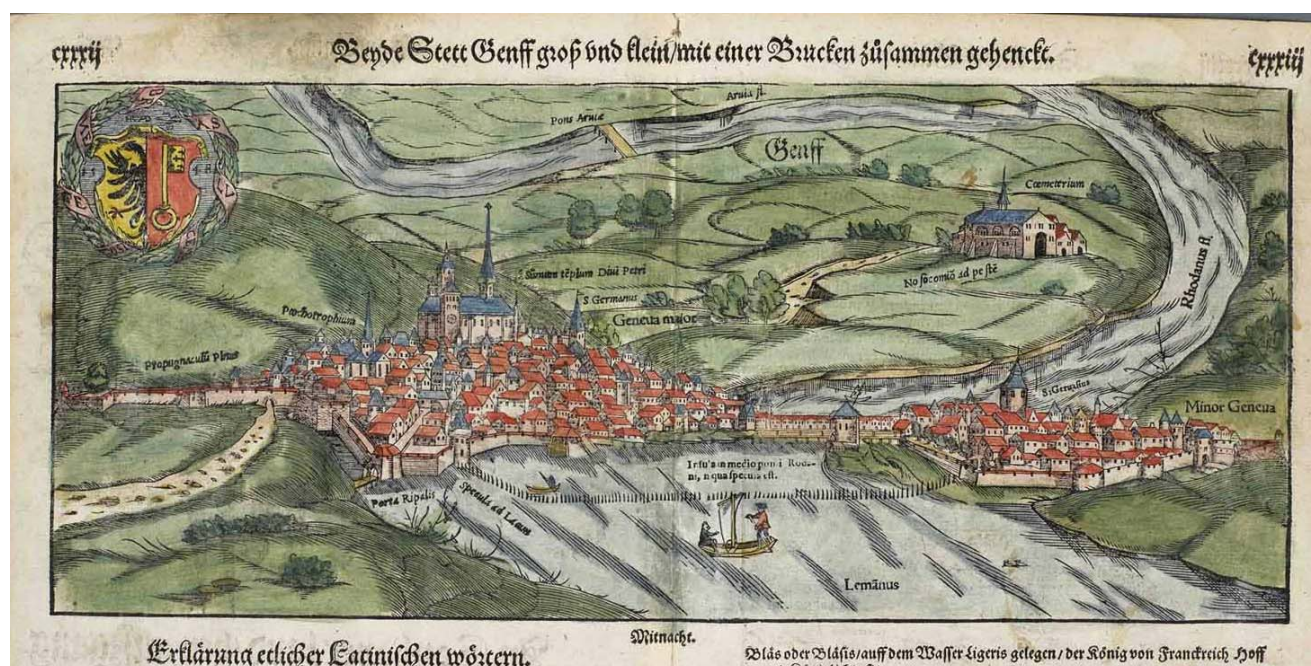 cxxxij
Beyde Stett Genff groß vnd klein/mit einer Brucken zůsammen gehenckt.
cxxxiij
Arua fl.
Pons Aruæ
Genff
Cœmeterium
Summū tēplum Diui Petri
Nosocomiō ad pestē
Rhodanus fl.
S Germanus
Geneua maior
Ptochotrophium
Propugnaculū Pinus
S. Geruasius
Minor Geneua
Insula in medio pontis Roda-
ni, in qua specula est.
Porta Ripalis
Specula ad Lacum
Lemānus
Mitnacht.
Erklärung etlicher Latinischen wörtern.
Bläs oder Bläsis/auff dem Wasser Ligeris gelegen/der König von Franckreich Hoff